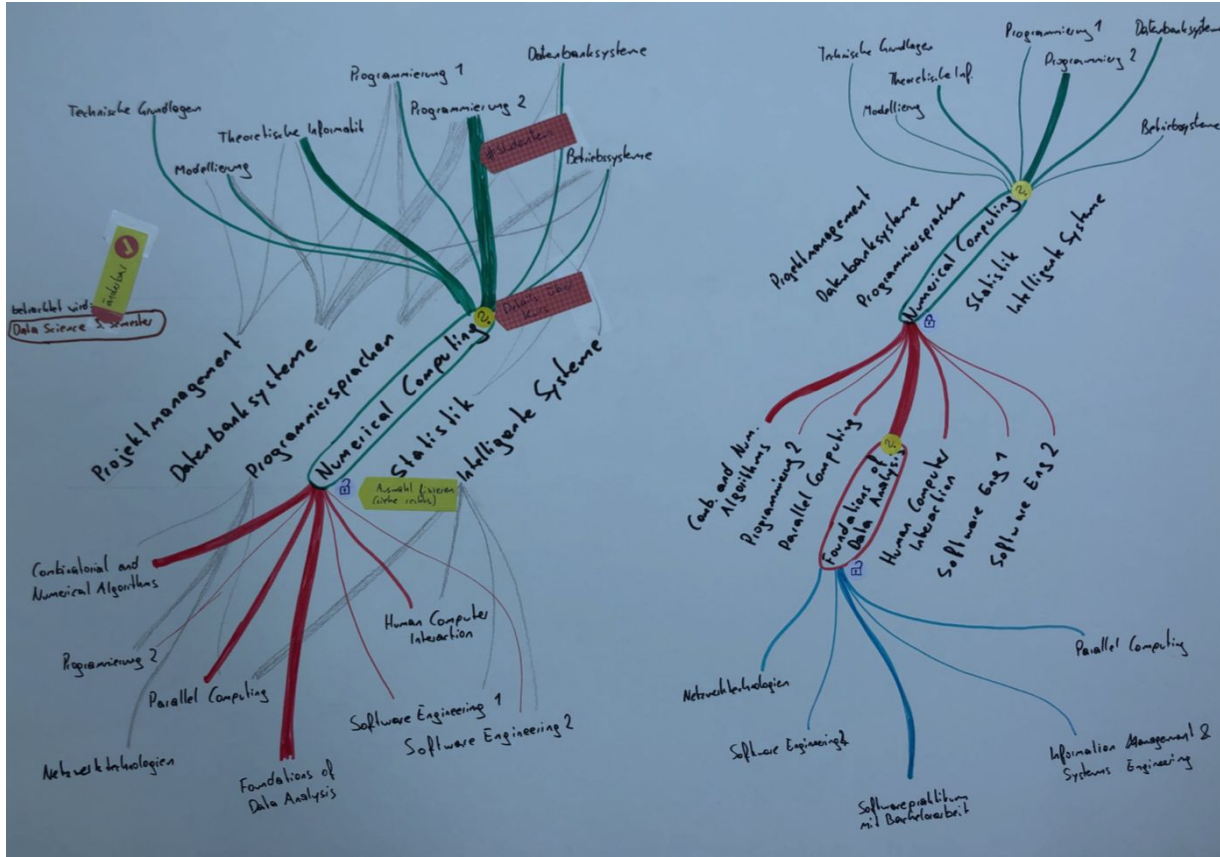 Technische Grundlagen
Theoretische Informatik
Modellierung
Programmierung 1
Programmierung 2
Datenbanksysteme
Betriebssysteme
# Studenten
Details über
Kurs
änderbar
betrachtet wird:
Data Science 3. Semester
Projektmanagement
Datenbanksysteme
Programmiersprachen
Numerical Computing
Statistik
Intelligente Systeme
Auswahl fixieren
(siehe rechts)
Combinatorial and
Numerical Algorithms
Programmierung 2
Parallel Computing
Netzwerktechnologien
Foundations of
Data Analysis
Software Engineering 1
Software Engineering 2
Human Computer
Interaction
Technische Grundlagen
Theoretische Inf.
Modellierung
Programmierung 1
Programmierg 2
Datenbanksysteme
Betriebsysteme
Projektmanagement
Datenbanksysteme
Programmiersprachen
Numerical Computing
Statistik
Intelligente Systeme
Comb. and Num.
Algorithms
Programmierung 2
Parallel Computing
Foundations of
Data Analysis
Human Computer
Interaction
Software Eng 1
Software Eng 2
Netzwerktechnologien
Software Engineering 2
Softwarepraktikum
mit Bachelorarbeit
Information Management &
Systems Engineering
Parallel Computing